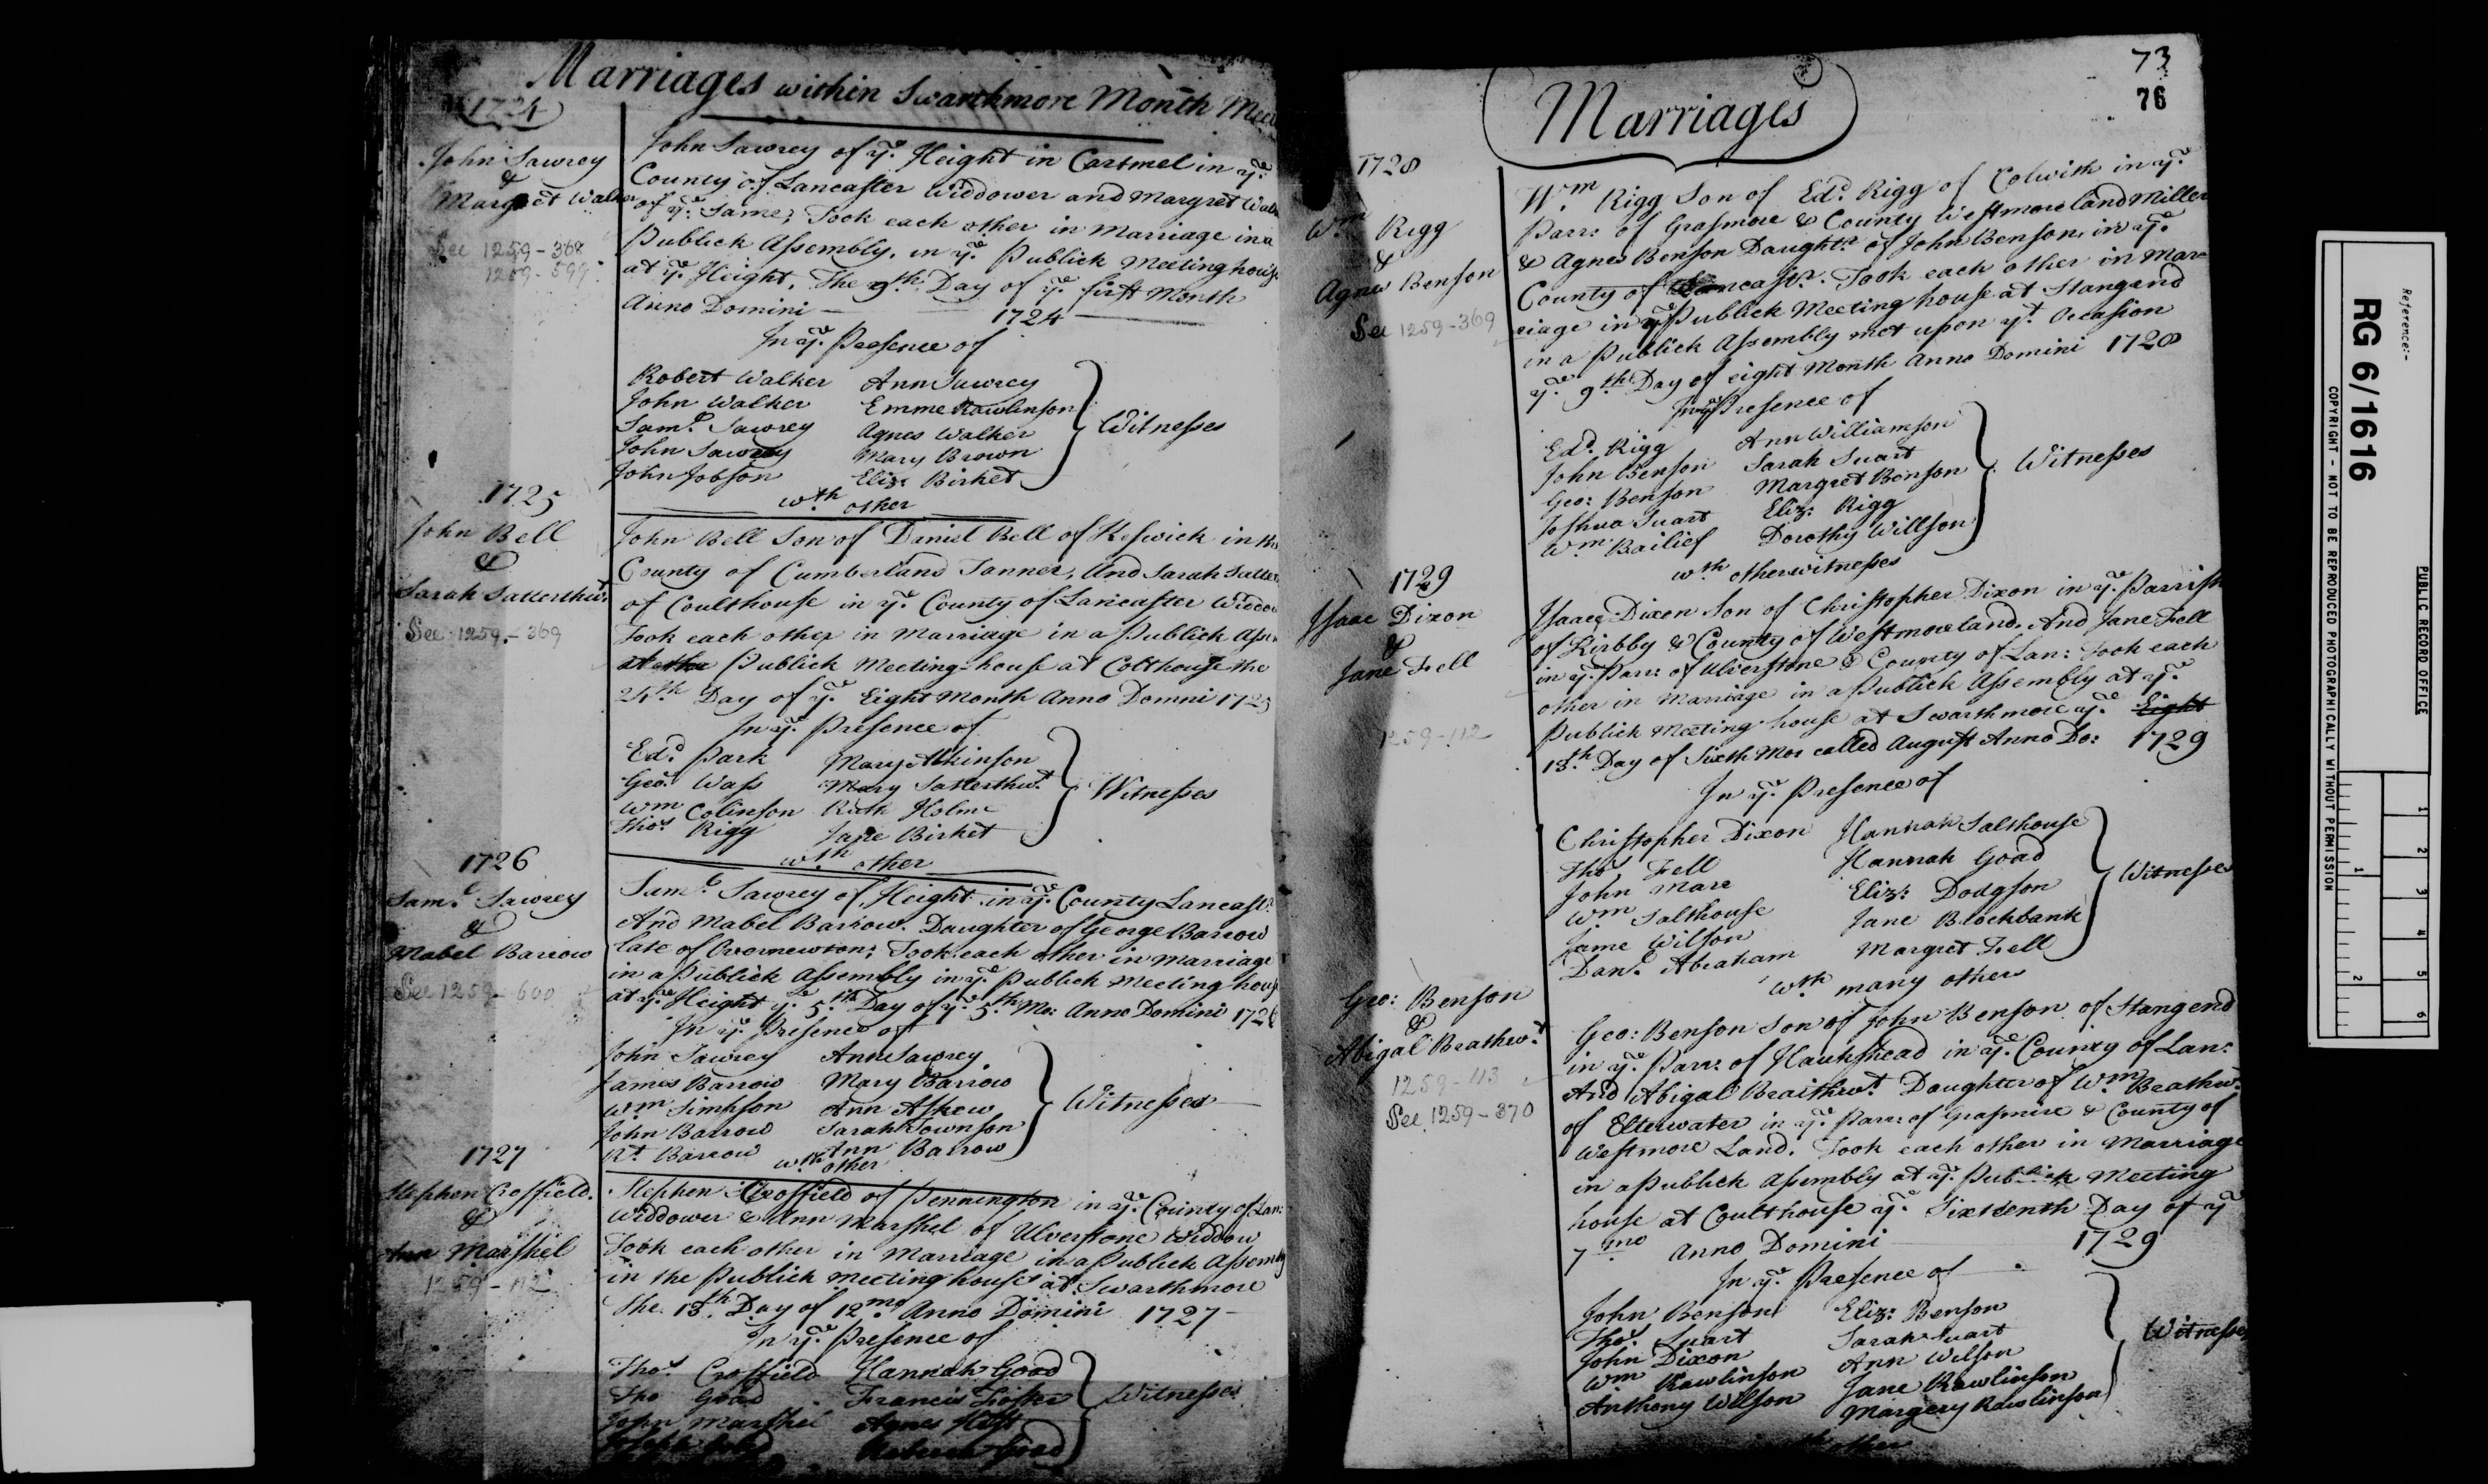 Marriages within Swarthmore Month Mee
1724
John Sawrey
&
Margret Walker
See 1259-368
1259-599
John Sawrey of ye Height in Cartmel in ye
County of Lancaster Widdower and Margret Walk
of ye Same; Took each other in Marriage in a
Publick Assembly, in ye Publick Meeting house
at ye Height, The 9th Day of ye first Month
Anno Domini — 1724
In ye Presence of
Robert Walker Ann Sawrey
John Walker Emme Rawlinson
Saml Sawrey Agnes Walker
John Sawrey Mary Brown
John Jobson Eliz: Birket
Witnesses
wth other
1725
John Bell
&
Sarah Satterthwt
See 1259-369
John Bell Son of Daniel Bell of Keswick in the
County of Cumberland Tanner, And Sarah Satter
of Coulthouse in ye County of Lancaster Widdow
Took each other in Marriage in a Publick Assem
at the Publick Meeting-house at Colthouse the
24th Day of ye Eight Month Anno Domni 1725
In ye Presence of
Edd Park Mary Atkinson
Geo: Wass Mary Satterthwt
Wm Colinson Ruth Holme
Thos Rigg Jane Birket
Witnesses
wth other
1726
Saml Sawrey
&
Mabel Barrow
See 1259-600
Saml Sawrey of Height in ye County Lancastr
And Mabel Barrow Daughter of George Barrow
late of Overnewton; Took each other in Marriage
in a Publick Assembly in ye Publick Meeting house
at ye Height ye 5th Day of ye 5th Mo: Anno Domini 1726
In ye Presence of
John Sawrey Ann Sawrey
James Barrow Mary Barrow
Wm Simpson Ann Askew
John Barrow Sarah Townson
Rt Barrow Ann Barrow
Witnesses
wth other
1727
Stephen Crosfield
&
Ann Marshel
1259-112
Stephen Crosfield of Pennington in ye County of Lan:
Widdower & Ann Marshel of Ulverstone Widdow
Took each other in Marriage in a Publick Assembly
in the Publick Meeting house at Swarthmore
The 13th Day of 12mo Anno Domini 1727
In ye Presence of
Thos Crosfield Hannah Goad
Tho Goad Francis Fisher
John Marshel Agnes
Goad
Witnesses
73
76
Marriages
1728
Wm Rigg
&
Agnes Benson
See 1259-369
Wm Rigg Son of Edd Rigg of Colwith in ye
Parr: of Grasmore & County Westmoreland Miller
& Agnes Benson Daughtr of John Benson in ye
County of Lancastr. Took each other in Mar=
riage in ye Publick Meeting house at Stangend
in a Publick Assembly met upon yt Occasion
ye 9th Day of eight Month Anno Domini 1728
In ye Presence of
Edd Rigg Ann Williamson
John Benson Sarah Suart
Geo: Benson Margret Benson
Joshua Suart Eliz: Rigg
Wm Bailief Dorothy Willson
Witnesses
wth other witnesses
1729
Isaac Dixon
&
Jane Fell
1259-112
Isaac Dixon Son of Christopher Dixon in ye Parrish
of Kirbby & County of Westmoreland. And Jane Fell
in ye Parr: of Ulverstone & County of Lan: Took each
other in Marriage in a Publick Assembly at ye
Publick Meeting house at Swarthmore ye Eight
13th Day of Sixth Mo: called August Anno Do: 1729
In ye Presence of
Christopher Dixon Hannah Salthouse
Thos Fell Hannah Goad
John Mare Eliz: Dodgson
Wm Salthouse Jane Blockbank
Jame Wilson Margret Fell
Danl Abraham
Witnesses
wth many other
Geo: Benson
&
Abigal Brathwt
1259-113
See 1259-370
Geo: Benson Son of John Benson of Stangend
in ye Parr: of Hawkshead in ye County of Lan:
And Abigal Braithwt Daughter of Wm Brathwt
of Elterwater in ye Parr: of Grasmire & County of
Westmore Land. Took each other in Marriage
in a Publick Assembly at ye Publick Meeting
house at Coulthouse ye Sixteenth Day of ye
7mo Anno Domini 1729
In ye Presence of
John Benson Eliz: Benson
Thos Suart Sarah Suart
John Dixon Ann Wilson
Wm Rawlinson Jane Rawlinson
Anthony Wilson Margery Rawlinson
Witnesses
other
PUBLIC RECORD OFFICE
Reference:-
RG 6/1616
COPYRIGHT - NOT TO BE REPRODUCED PHOTOGRAPHICALLY WITHOUT PERMISSION
1 2 3 4 5 6
1 2